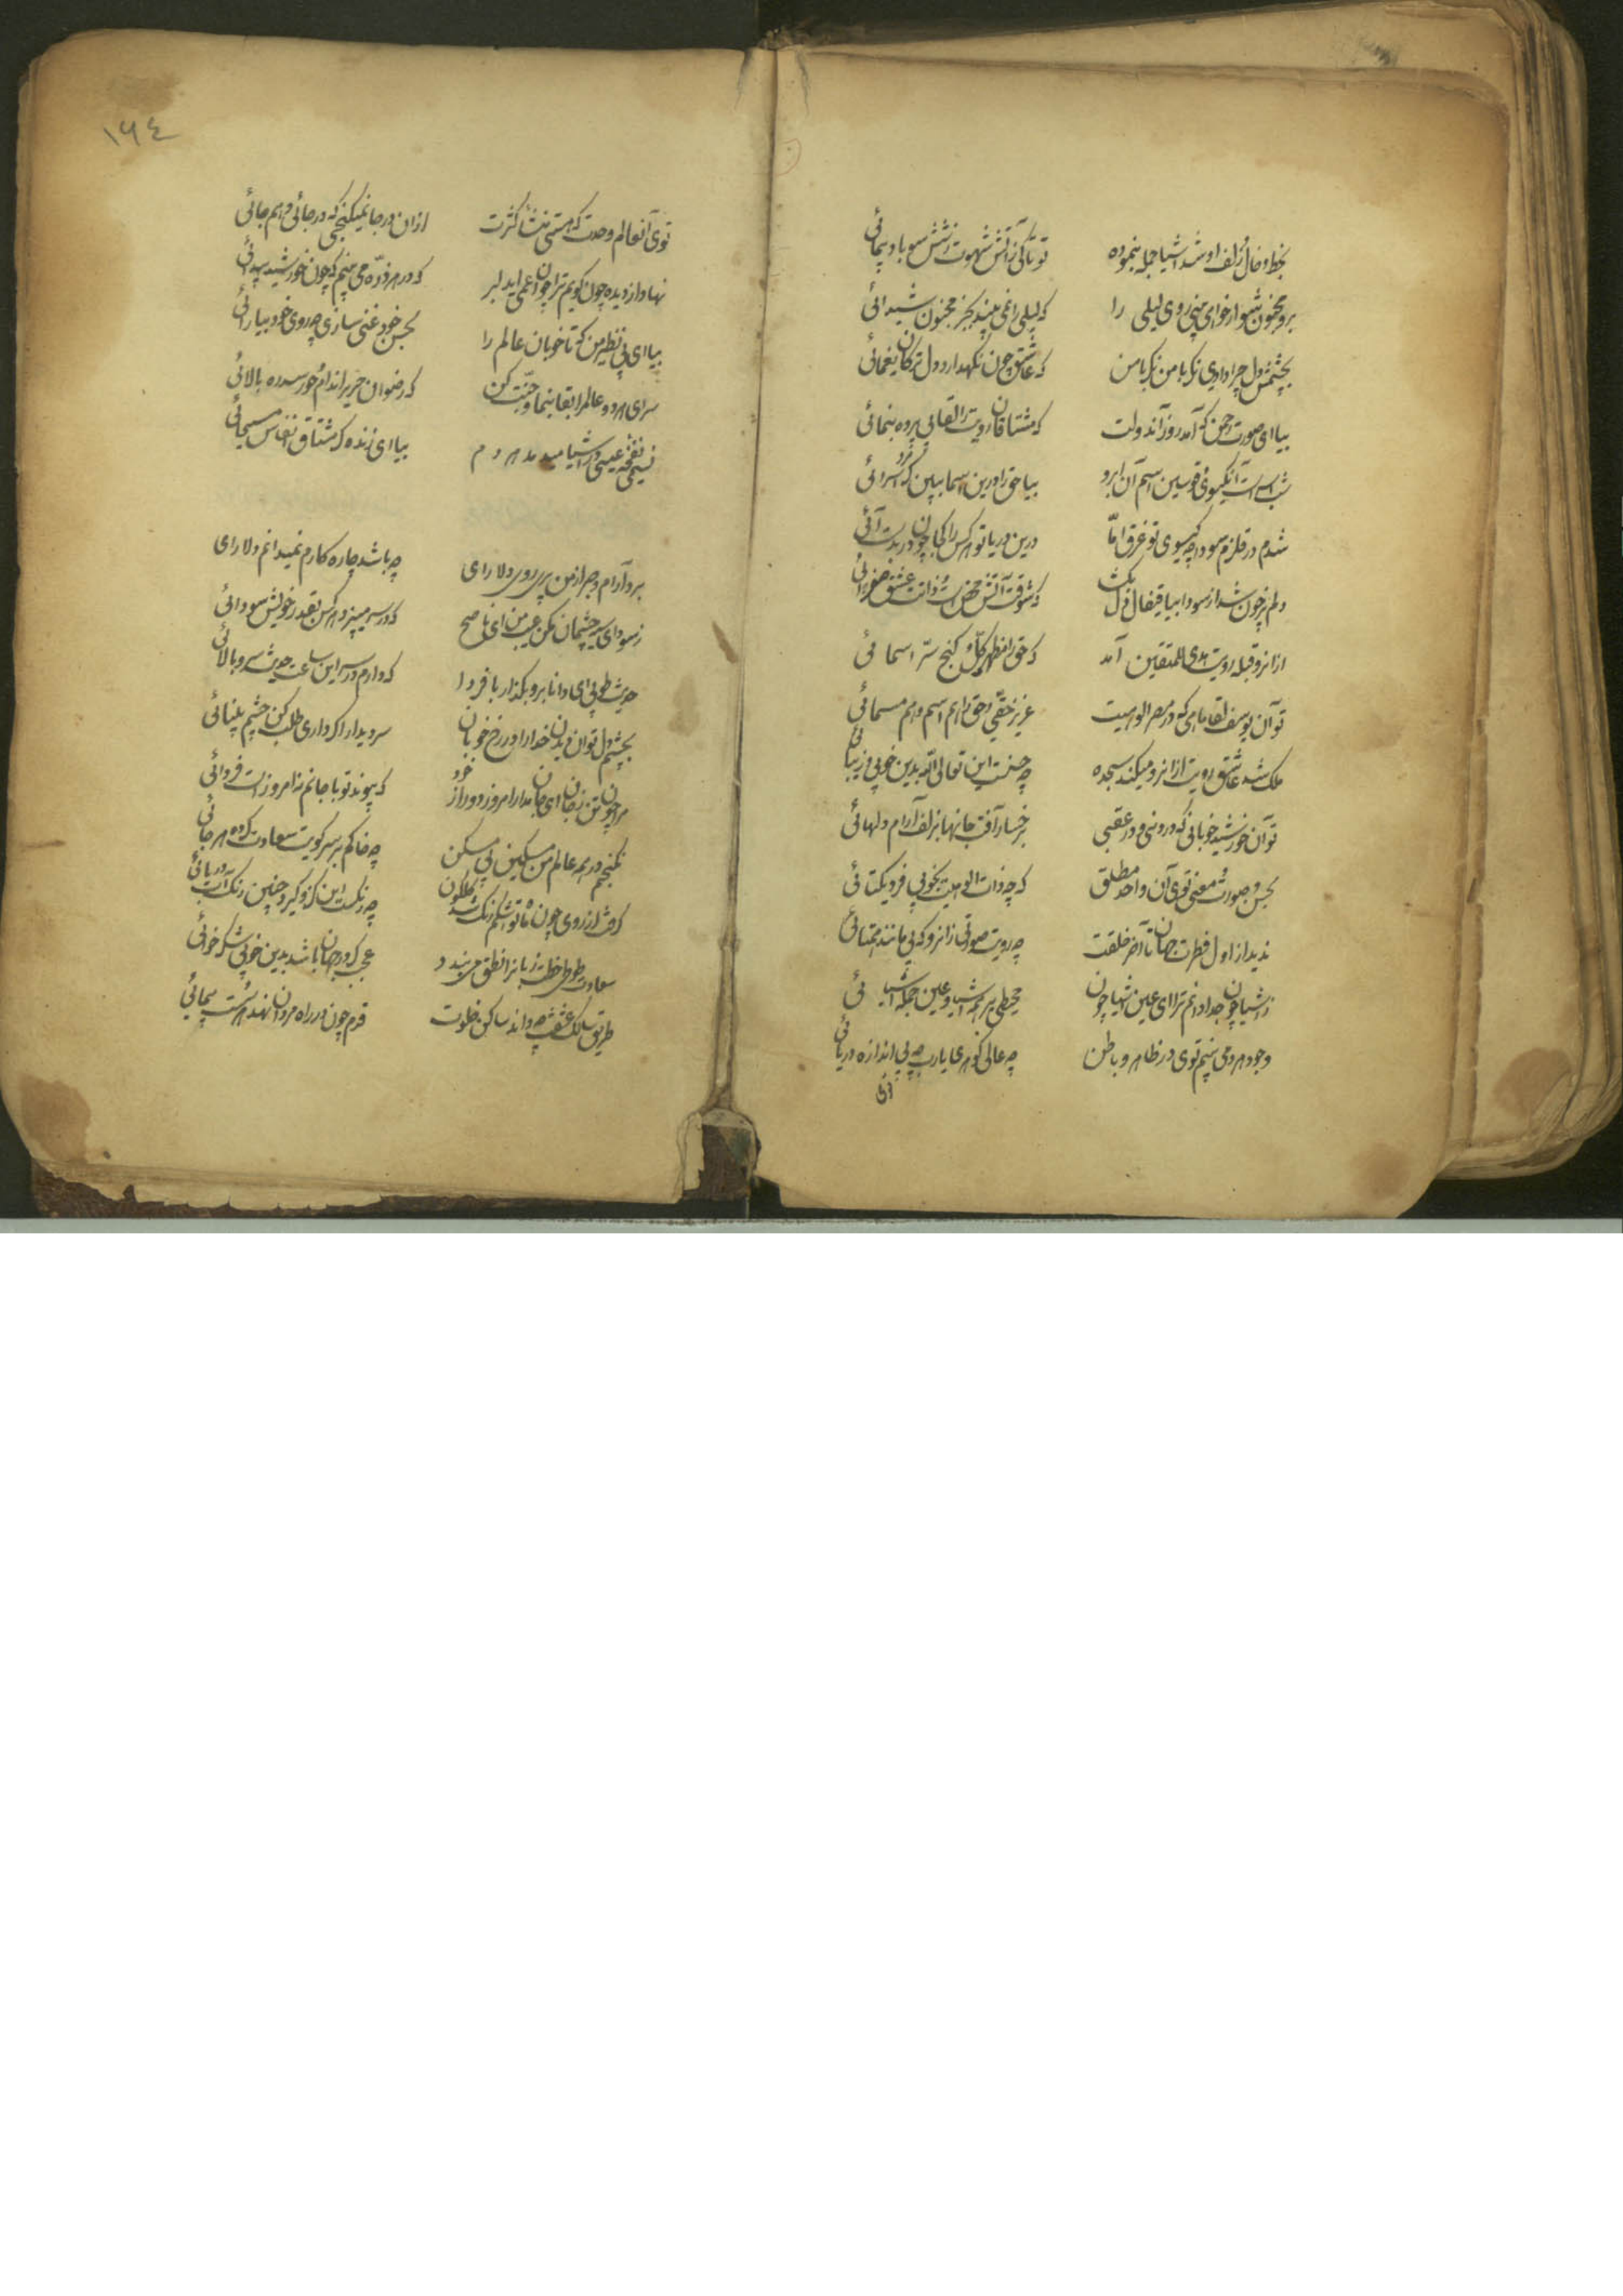 بخط و خال و زلف او شد اشیا جمله بنموده تو تا کی زآتش شهوت زشش سو باد پیمائی
برو مجنون شو ار خواهی که بینی روی لیلی را که لیلی را نمی‌بیند بجز مجنون شیدائی
بچشمش دل چرا دادی نکر با من نکر با من که عاشق چون نکهدارد دل از ترکان یغمائی
بیا ای صورت رحمن که آمد روز آن دولت که مشتاقان رویت را لقا بی پرده بنمائی
شب اسریست آن کیسوی و قوسین اسم آن ابرو بیا حق را درین اسما ببین کز مرد اسرائی
شدم در قلزم سودا چو کیسوی تو غرق اما درین دریا تو هر کس را کجا چون در بدست آئی
دلم پر خون شد از سودا بیا قیفال دل بکشا که شوقت آتش محض است و ذات عشق صفرائی
ازانرو قبله رویت هدی للمتقین آمد که حق را مظهر کلی و کنج سر اسمائی
تو آن یوسف لقا مائی که در مصر الوهیت عزیز حقی و حق را هم اسم و هم مسمائی
ملک شد عاشق رویت ازانرو میکند سجده چه حسنست این تعالی الله بدین خوبی و زیبائی
تو آن خورشید خوبانی که در دنیی و در عقبی برخسار آفت جانها بزلف آرام دلهائی
بحسن و صورت و معنی توی آن واحد مطلق که چو ذات الوهیت بخوبی فرد و یکتائی
ندید از اول فطرت جهان تا آخر خلقت چو رویت صورتی زانرو که بی مانند و همتائی
ز اشیا چون جدا دانم ترا ای عین اشیا چون محیطی بر همه اشیا و عین جمله اشیائی
وجود هر دو می‌بینم توی در ظاهر و باطن چه عالی کوهری یارب چه بی اندازه دریائی
١٦٤
توی آن عالم وحدت که هستی منشأ کثرت ازان در جا نمیکنجی که در جائی و هم جائی
نهان از دیده چون کویم ترا چون اعمی ای دلبر که در هر ذره می‌بینم که چون خورشید پیدائی
بیا ای بی نظیر من که تا خوبان عالم را بحسن خود غنی سازی چو روی خود بیارائی
سرای هر دو عالم را لقا بنما و جنت کن که رضوان حریر اندام و حور سدره بالائی
نسیمی نفخه عیسی در اشیا میدمد هر دم بیا ای زنده کر مشتاق انفاس مسیحائی
برد آرام و صبر از من پری رویی دلارای چه باشد چاره کارم نمیدانم دلارای
ز سودای سیه چشمان مکن عیب من ای ناصح که در سر میپزد هر کس بقدر خویش سودائی
حدیث طوبی ای دانا برو بکذار با فردا که دارم در سر این ساعت حدیث سرو بالائی
بچشم دل توان دیدن خدا را در رخ خوبان سر دیدار اکر داری طلب کن چشم بینائی
مرا چون تن ز جان ای جان مدار امروز دور از خود که پیوند تو با جانم نه امروزست و فردائی
نکنجم در همه عالم من مسکین بی مسکن چو خاکم بر سر کویت سعادت کرده هر جائی
کرفت از روی چون ماه تو اشکم رنک شد کلکون چه رنکست این کزو کیرد چنین رنک آب دریائی
سعادت طوطی خطت زبانرا نطق می‌بندد عجب کر در جهان باشد بدین خوبی شکرخوائی
طریق سالک عشقش چه داند ساکن خلوت قدم چون در راه مردان نهد هر سست پیمائی